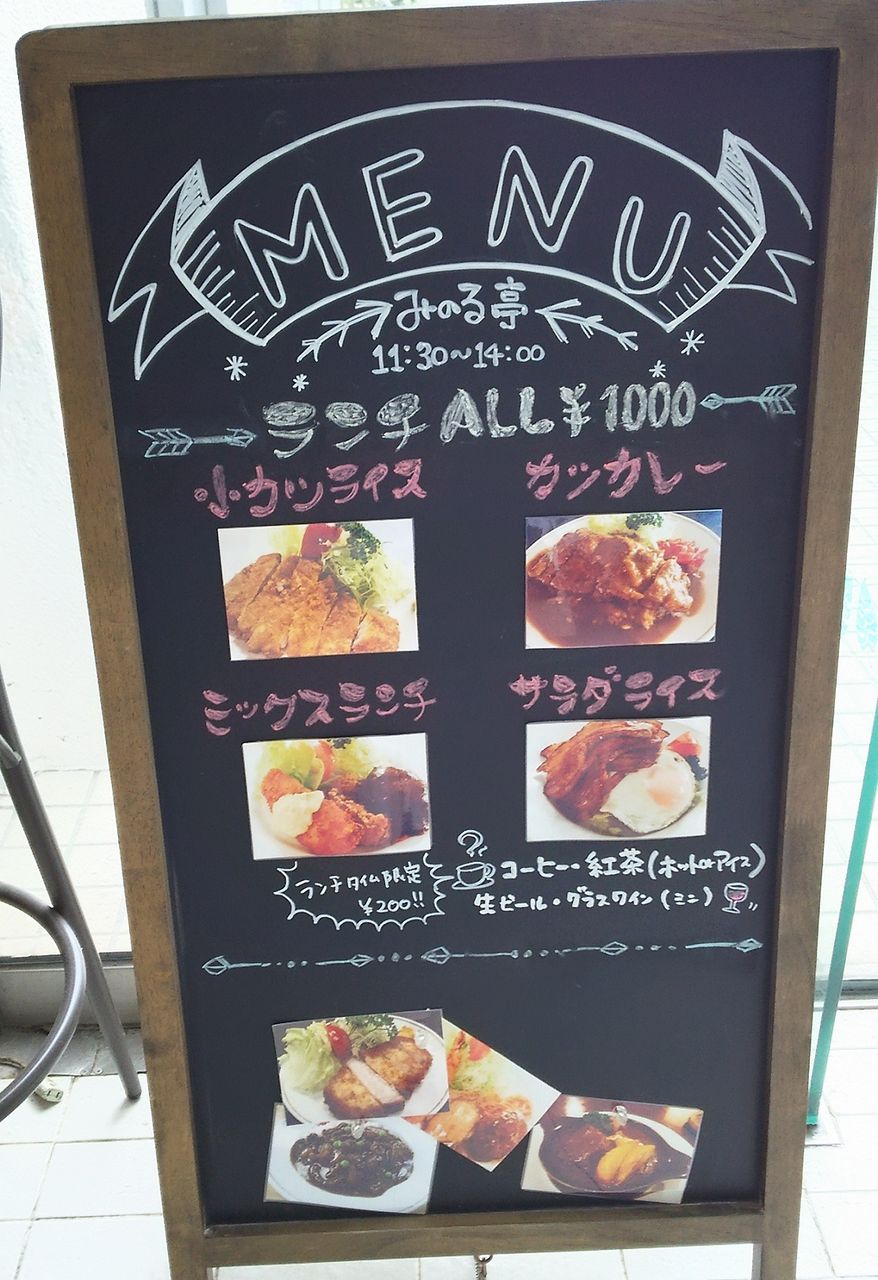 MENU
みのる亭
11:30~14:00
ランチ ALL ¥1000
小カツライス
カツカレー
ミックスランチ
サラダライス
ランチタイム限定
¥200!!
コーヒー・紅茶(ホットorアイス)
生ビール・グラスワイン(ミニ)